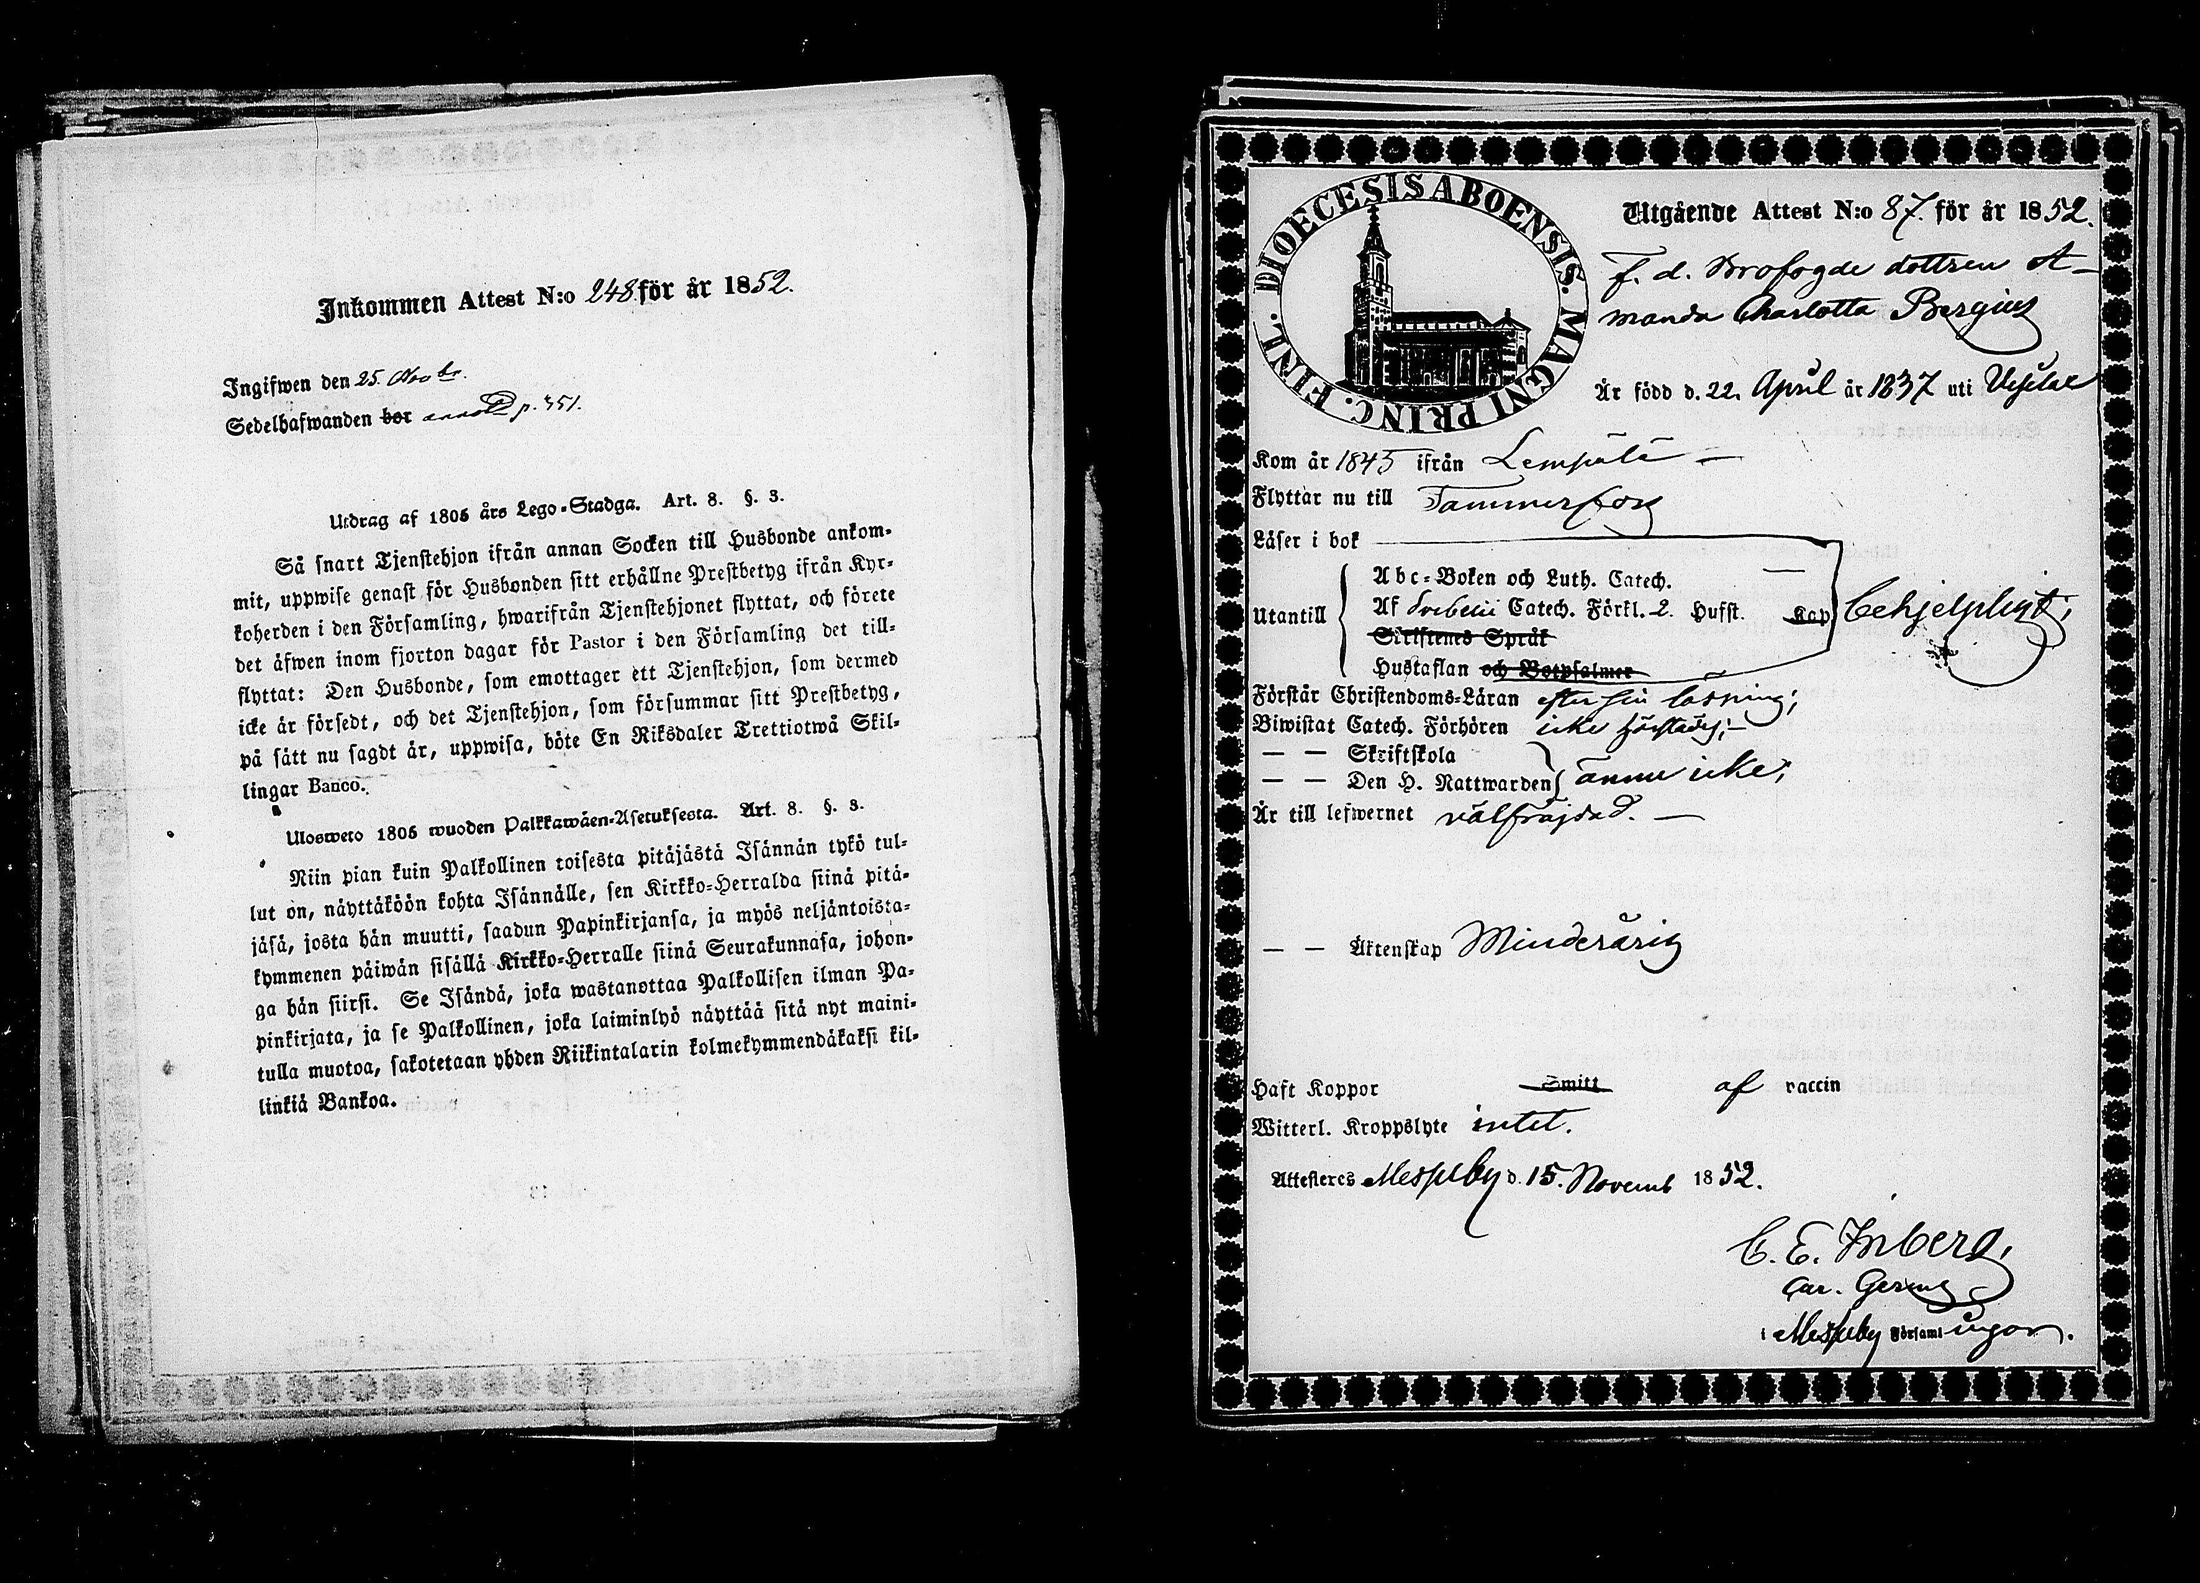 Inkommen Attest N:o 248. för år 1852.
Ingifwen den 25. Novbr.
Sedelhafwanden bor p. 351.
Utdrag af 1805 års Lego-Stadga. Art. 8. §. 3.
Så snart Tjenstehjon ifrån annan Socken till Husbonde ankom-
mit, uppwise genast för Husbonden sitt erhållne Prestbetyg ifrån Kyr-
koherden i den Församling, hwarifrån Tjenstehjonet flyttat, och förete
det äfwen inom fjorton dagar för Pastor i den Församling det till-
flyttat: Den Husbonde, som emottager ett Tjenstehjon, som dermed
icke är försedt, och det Tjenstehjon, som försummar sitt Prestbetyg,
på sätt nu sagdt är, uppwisa, böte En Riksdaler Trettiotwå Skil-
lingar Banco.
Ulosweto 1805 wuoden Palkkawäen-Asetuksesta. Art. 8. §. 3.
Niin pian kuin Palkollinen toisesta pitäjästä Isännän tykö tul-
lut on, näyttäköön kohta Isännälle, sen Kirkko-Herralda siinä pitä-
jäsä, josta hän muutti, saadun Papinkirjansa, ja myös neljäntoista-
kymmenen päiwän sisällä Kirkko-Herralle siinä Seurakunnasa, johon-
ga hän siirsi. Se Isändä, joka wastanottaa Palkollisen ilman Pa-
pinkirjata, ja se Palkollinen, joka laiminlyö näyttää sitä nyt maini-
tulla muotoa, sakotetaan yhden Riikintalarin kolmekymmendäkaksi kil-
linkiä Bankoa.
DIOECESIS ABOENSIS. MAGNI PRINC. FINL.
Utgående Attest N:o 87. för år 1852.
F. d. Brofogde dottren A-
manda Charlotta Bergius
Är född d. 22. April år 1837 uti Vesilax
Kom år 1845 ifrån Lempälä —
Flyttar nu till Tammerfors
Läser i bok
Abc-Boken och Luth. Catech. —
Utantill Af Svebelii Catech. Förkl. 2. Hufst. Kap behjelpligt;
Skriftenes Språk
Hustaflan och Botpsalmer
Förstår Christendoms-Läran efter sin läsning;
Biwistat Catech. Förhören icke
— — Skriftskola
— — Den H. Nattwarden ännu icke;
Är till lefwernet välfrägdad. —
— — Äktenskap Minderårig
Haft Koppor Smitt af vaccin
Witterl. Kroppslyte intet.
Attesteres Messuby d. 15. Novemb 1852.
C. E. Inberg,
i Messuby Församl ingar.